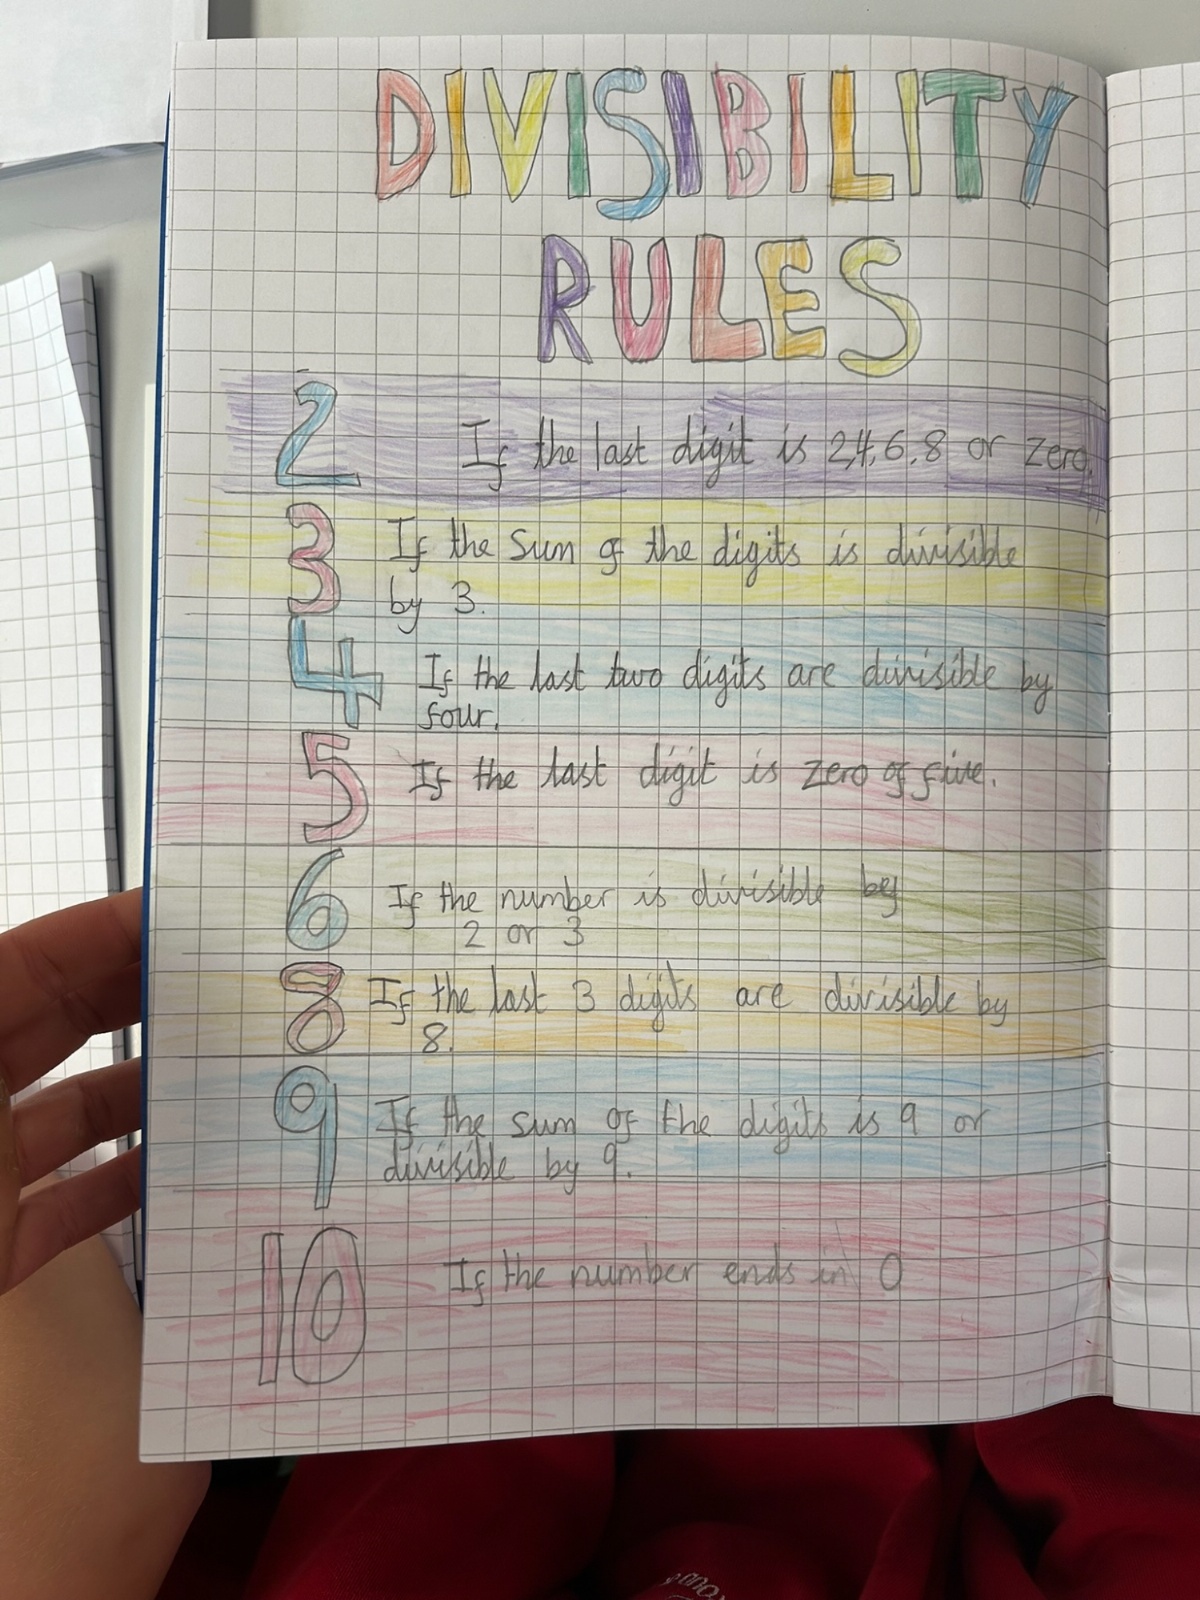 DIVISIBILITY
RULES
2 If the last digit is 2,4,6,8 or zero.
3 If the sum of the digits is divisible
by 3.
4 If the last two digits are divisible by
four.
5 If the last digit is zero of five.
6 If the number is divisible by
2 or 3
8 If the last 3 digits are divisible by
8.
9 If the sum of the digits is 9 or
divisible by 9.
10 If the number ends in 0